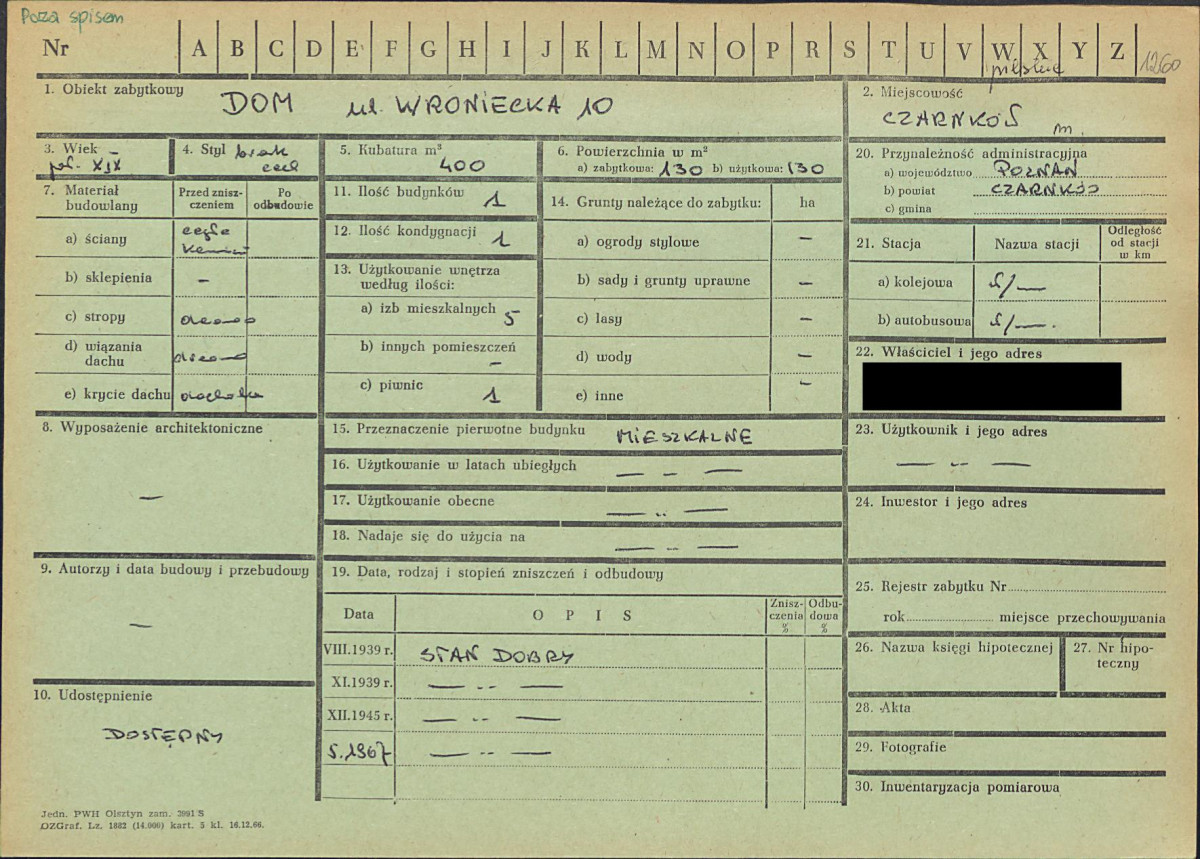 Poza spisem
Nr A B C D E F G H I J K L M N O P R S T U V W X Y Z 1260
pilskie
1. Obiekt zabytkowy
DOM ul. WRONIECKA 10
2. Miejscowość
CZARNKÓW m.
3. Wiek
poł. XIX
4. Styl brak
cech
5. Kubatura m³
400
6. Powierzchnia w m²
a) zabytkowa: 130 b) użytkowa: 130
20. Przynależność administracyjna
a) województwo POZNAŃ
b) powiat CZARNKÓW
c) gmina
7. Materiał budowlany
Przed zniszczeniem
Po odbudowie
a) ściany cegła
kamień
b) sklepienia –
c) stropy drewno
d) wiązania dachu drewno
e) krycie dachu dachówka
11. Ilość budynków 1
12. Ilość kondygnacji 1
13. Użytkowanie wnętrza
według ilości:
a) izb mieszkalnych 5
b) innych pomieszczeń –
c) piwnic 1
14. Grunty należące do zabytku: ha
a) ogrody stylowe –
b) sady i grunty uprawne –
c) lasy –
d) wody –
e) inne –
21. Stacja
Nazwa stacji
Odległość od stacji w km
a) kolejowa
b) autobusowa
22. Właściciel i jego adres
8. Wyposażenie architektoniczne
—
15. Przeznaczenie pierwotne budynku MIESZKALNE
16. Użytkowanie w latach ubiegłych — - —
17. Użytkowanie obecne — „ —
18. Nadaje się do użycia na — „ —
23. Użytkownik i jego adres
— „ —
24. Inwestor i jego adres
9. Autorzy i data budowy i przebudowy
—
19. Data, rodzaj i stopień zniszczeń i odbudowy
Data
OPIS
Zniszczenia %
Odbudowa %
VIII.1939 r. STAN DOBRY
XI.1939 r. — „ —
XII.1945 r. — „ —
5.1967 — „ —
25. Rejestr zabytku Nr
rok miejsce przechowywania
26. Nazwa księgi hipotecznej
27. Nr hipoteczny
10. Udostępnienie
DOSTĘPNY
28. Akta
29. Fotografie
30. Inwentaryzacja pomiarowa
Jedn. PWH Olsztyn zam. 3991 S
OZGraf. Lz. 1882 (14.000) kart. 5 kl. 16.12.66.